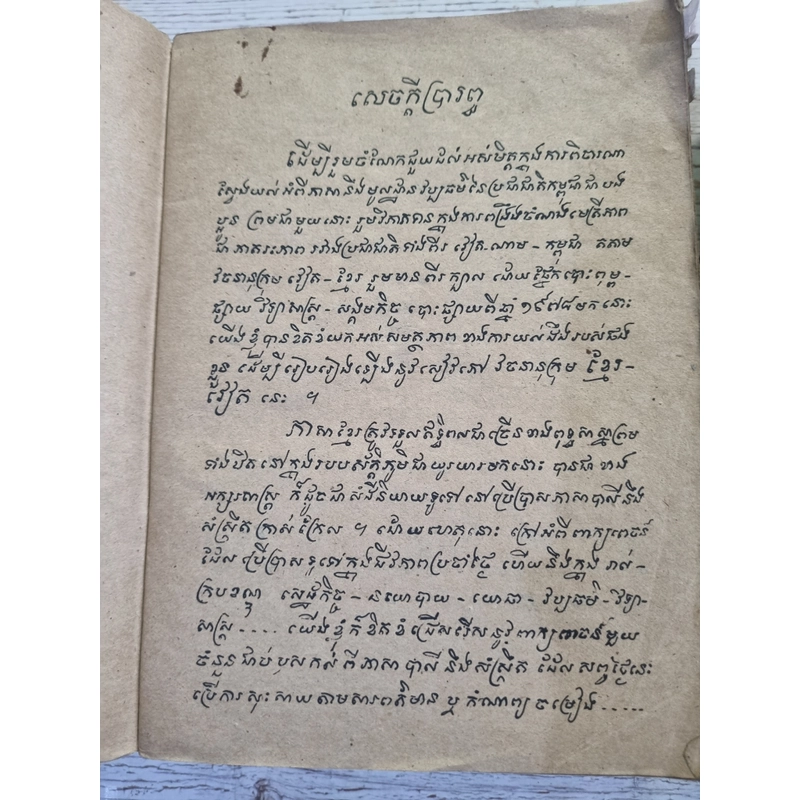 សេចក្ដីប្រារព្ធ
ដើម្បីរួមចំណែកជួយដល់អស់មិត្តក្នុងការពិចារណា
ស្វែងយល់អំពីភាសានឹងមូលដ្ឋានវប្បធម៌នៃប្រជាជាតិកម្ពុជាជាបង
ប្អូន ព្រមជាមួយនោះ រួមវិភាគទានក្នុងការពង្រឹងចំណងមេត្រីភាព
ជា ភាតរះភាព រវាងប្រជាជាតិទាំងពីរ វៀត-ណាម - កម្ពុជា តតាម
វចនានុក្រម វៀត - ខ្មែរ រួមមានពីរក្បាល ដោយផ្នែកបោះពុម្ព -
ផ្សាយ វិទ្យាសាស្ត្រ - សង្គមកិច្ច បោះផ្សាយពីឆ្នាំ ១៩៧៨មក នោះ
យើងខ្ញុំបានខិតខំយកអស់សមត្ថភាព ខាងការយល់ដឹងរបស់ផង
ខ្លួន ដើម្បីរៀបរៀងឡើងនូវសៀវភៅ វចនានុក្រម ខ្មែរ -
វៀត នេះ ។
ភាសាខ្មែរត្រូវទទួលឥទ្ធិពលជាច្រើនខាងពុទ្ធសាស្នាព្រម
ទាំងឋិតនៅក្នុងរបបស័ក្ដិភូមិជាយូរយារមកនោះ បានជា ខាង
អក្សរសាស្ត្រ ក៏ដូចជាសំដីនិយាយទូទៅនៅប្រើប្រាស់ភាសាបាលីនឹង
សំស្រឹតក្រាស់ក្រែល ។ ដោយហេតុនោះ ក្រៅអំពីពាក្យពេចន៍
ដែលប្រើប្រាសទូទៅក្នុងជីវភាពប្រចាំថ្ងៃ ហើយនឹងក្នុង រាល់-
ក្របខណ្ឌ ស្នេដ្ឋកិច្ច - នយោបាយ - យោធា - វប្បធម៌ - វិទ្យា-
សាស្ត្រ .... យើងខ្ញុំក៏ខិតខំជ្រើសរើសនូវពាក្យពេចន៍មួយ
ចំនួនជាប់ឫសគល់ពីភាសាបាលីនឹងសំស្រឹត ដែលសព្វថ្ងៃនេះ
ប្រើការសុះសាយតាមសារពត៌មាន ឬ កំណាព្យ ចម្រៀង .....